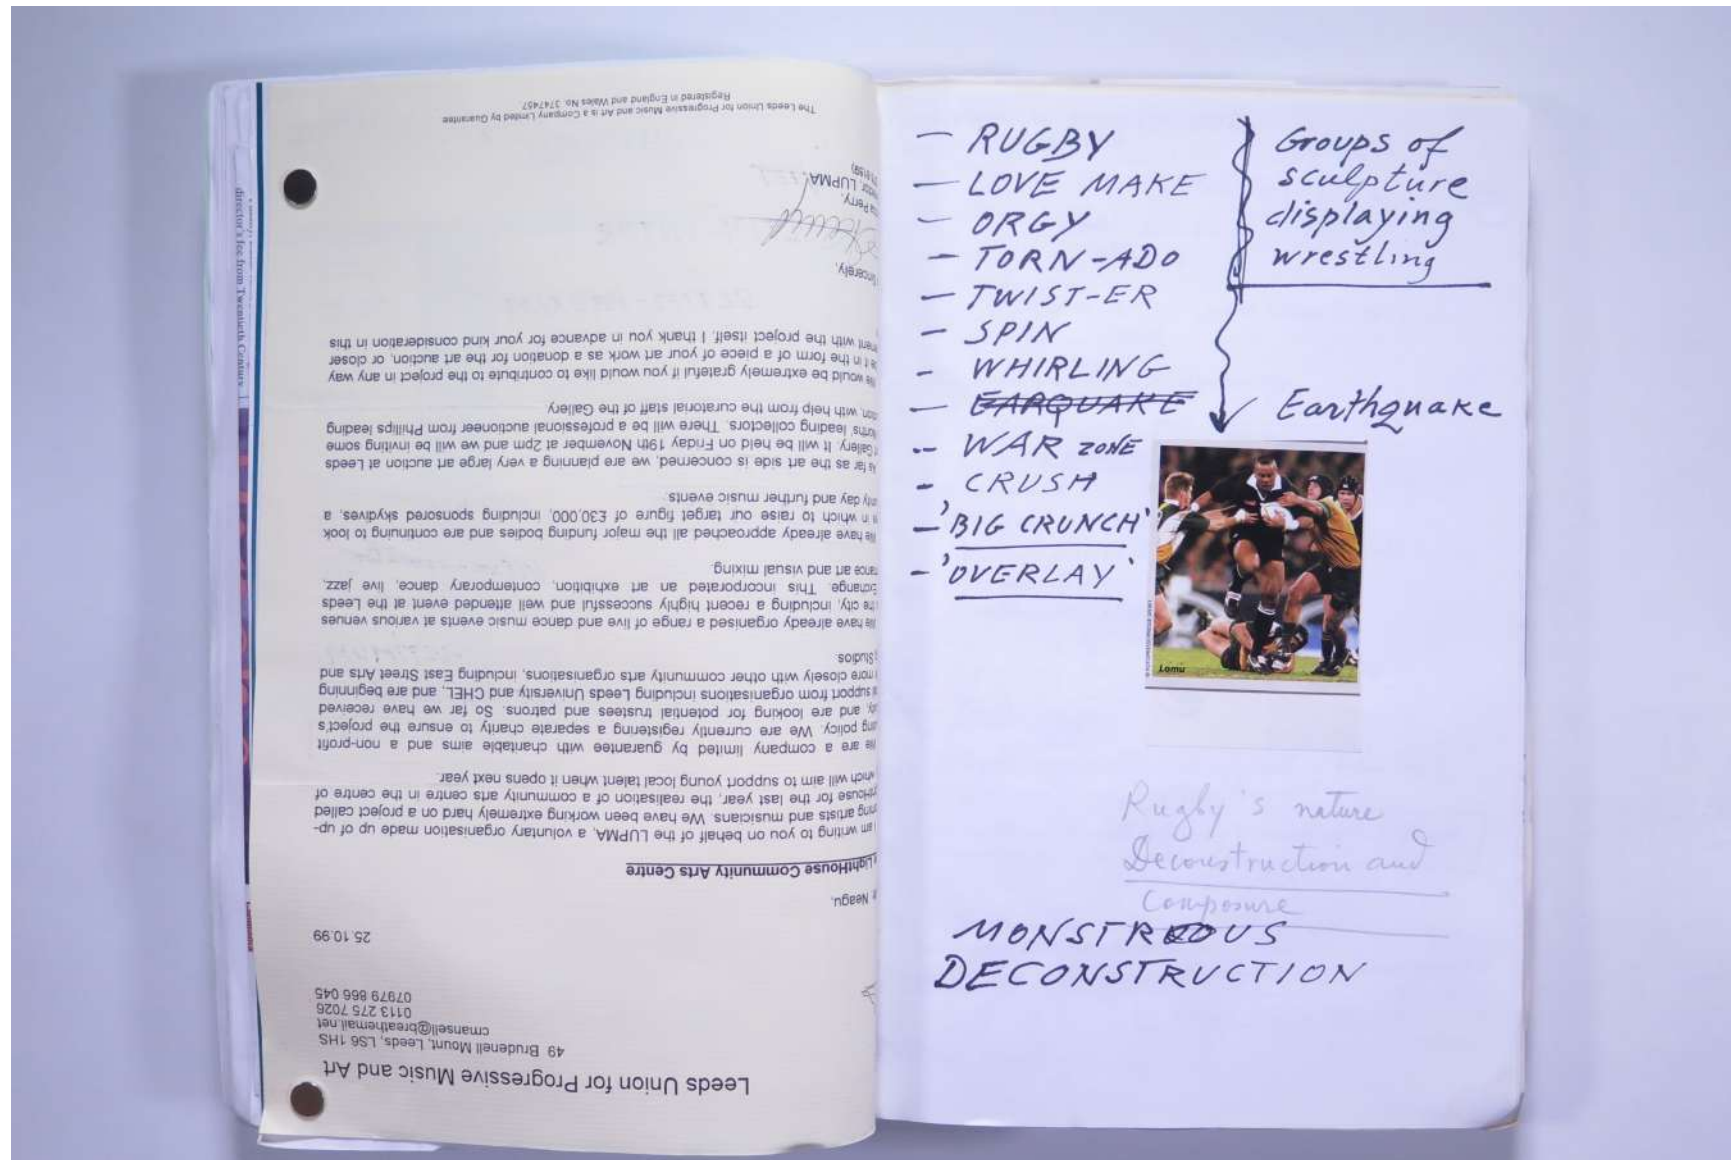 Leeds Union for Progressive Music and Art
49 Brudenell Mount, Leeds, LS6 1HS
cmansell@breathemail.net
0113 275 7026
07979 866 045
25.10.99
Neagu,
LightHouse Community Arts Centre
am writing to you on behalf of the LUPMA, a voluntary organisation made up of up-
artists and musicians. We have been working extremely hard on a project called
for the last year, the realisation of a community arts centre in the centre of
which will aim to support young local talent when it opens next year.
We are a company limited by guarantee with charitable aims and a non-profit
policy. We are currently registering a separate charity to ensure the project's
and are looking for potential trustees and patrons. So far we have received
support from organisations including Leeds University and CHEL, and are beginning
more closely with other community arts organisations, including East Street Arts and
Studios.
We have already organised a range of live and dance music events at various venues
the city, including a recent highly successful and well attended event at the Leeds
Exchange. This incorporated an art exhibition, contemporary dance, live jazz,
art and visual mixing.
We have already approached all the major funding bodies and are continuing to look
in which to raise our target figure of £30,000, including sponsored skydives, a
day and further music events.
As far as the art side is concerned, we are planning a very large art auction at Leeds
Gallery. It will be held on Friday 19th November at 2pm and we will be inviting some
leading collectors. There will be a professional auctioneer from Phillips leading
with help from the curatorial staff of the Gallery.
We would be extremely grateful if you would like to contribute to the project in any way
in the form of a piece of your art work as a donation for the art auction, or closer
with the project itself. I thank you in advance for your kind consideration in this
Perry,
LUPMA
The Leeds Union for Progressive Music and Art is a Company Limited by Guarantee
Registered in England and Wales No. 3747457
director's fee from Twentieth Century
– RUGBY
– LOVE MAKE
– ORGY
– TORN-ADO
– TWIST-ER
– SPIN
– WHIRLING
– EARQUAKE
-- WAR ZONE
- CRUSH
– 'BIG CRUNCH'
– 'OVERLAY'
Groups of
sculpture
displaying
wrestling
Earthquake
Lomu
Rugby's nature
Deconstruction and
Composure
MONSTROUS
DECONSTRUCTION